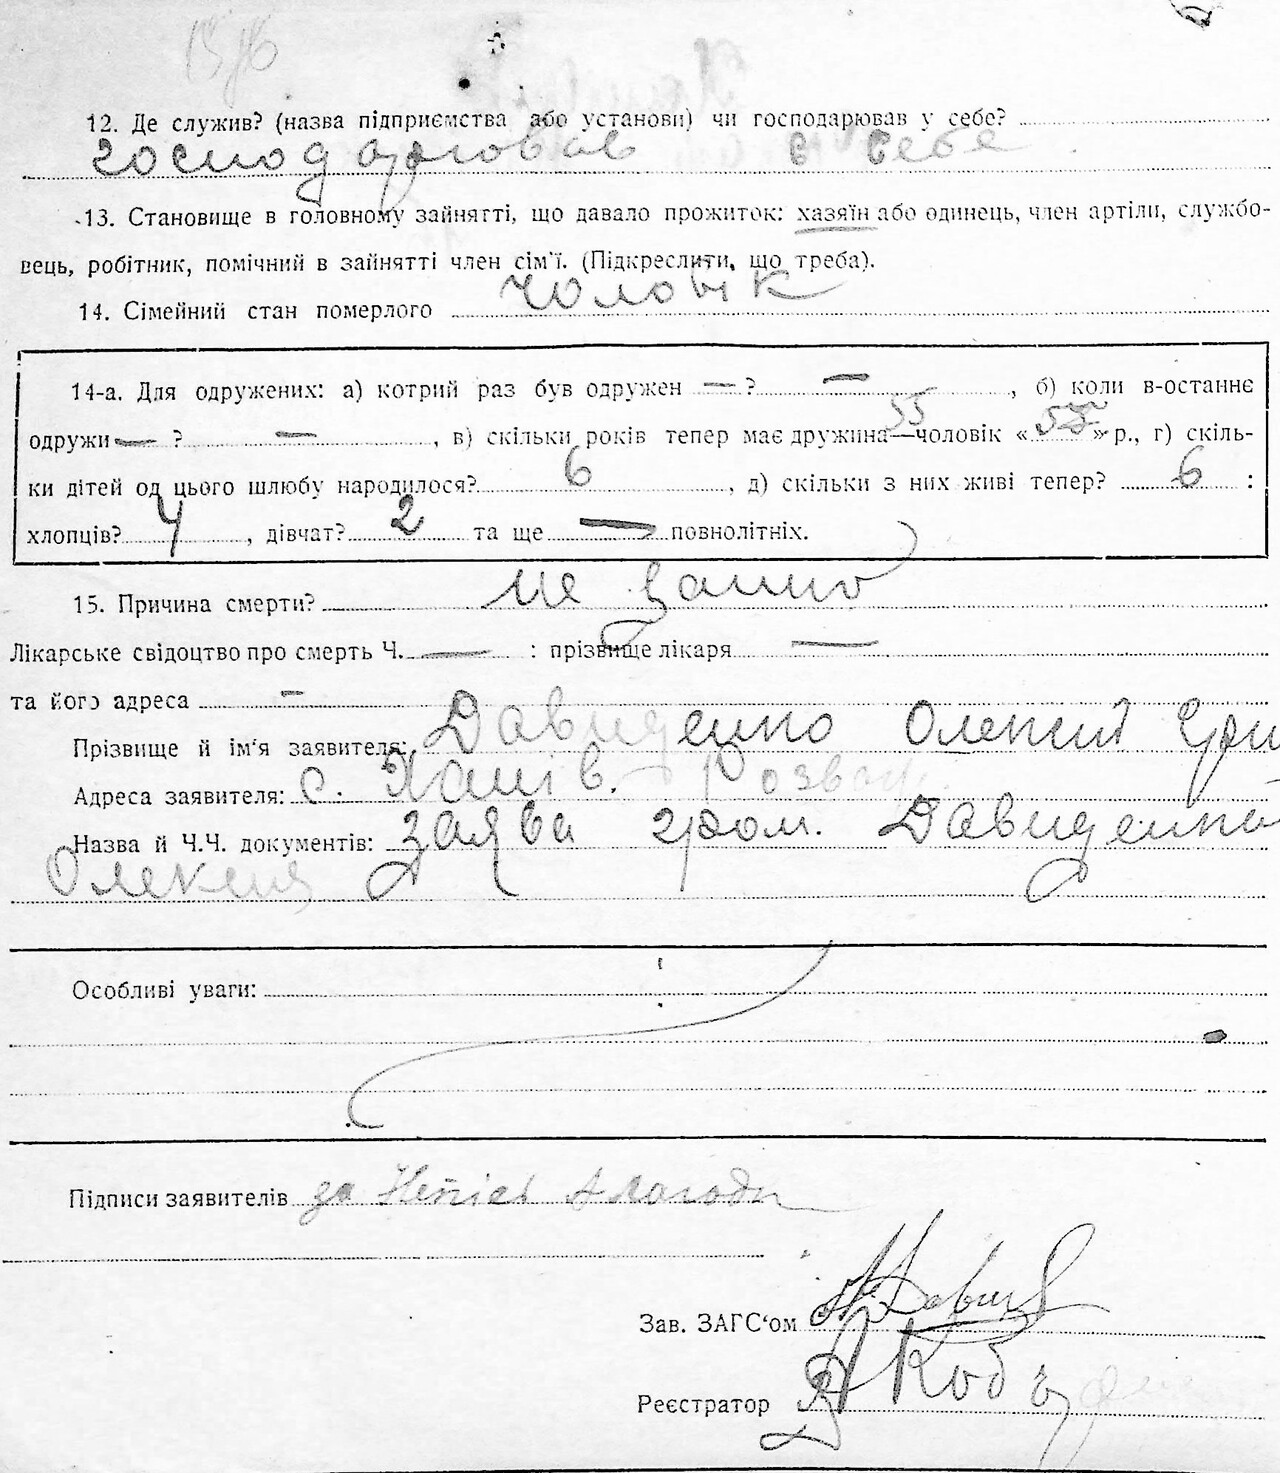 12. Де служив? (назва підприємства або установи) чи господарював у себе?
господарював в себе
13. Становище в головному зайнятті, що давало прожиток: хазяїн або одинець, член артіли, службо-
вець, робітник, помічний в зайнятті член сім'ї. (Підкреслити, що треба).
14. Сімейний стан померлого чоловік
14-а. Для одружених: а) котрий раз був одружен — ? — , б) коли в-останнє
одружи — ? — , в) скільки років тепер має дружина—чоловік 55 « 55 » р., г) скіль-
ки дітей од цього шлюбу народилося? 6 , д) скільки з них живі тепер? 6 :
хлопців? 4 , дівчат? 2 та ще — повнолітніх.
15. Причина смерти? не знано
Лікарське свідоцтво про смерть Ч. — : прізвище лікаря —
та його адреса —
Прізвище й ім'я заявителя: Давиденко Олексий Гри
Адреса заявителя: с. Ханів. Розваж
Назва й Ч.Ч. документів: заява гром. Давиденка
Олексия
Особливі уваги:
Підписи заявителів за
Зав. ЗАГС'ом
Реєстратор